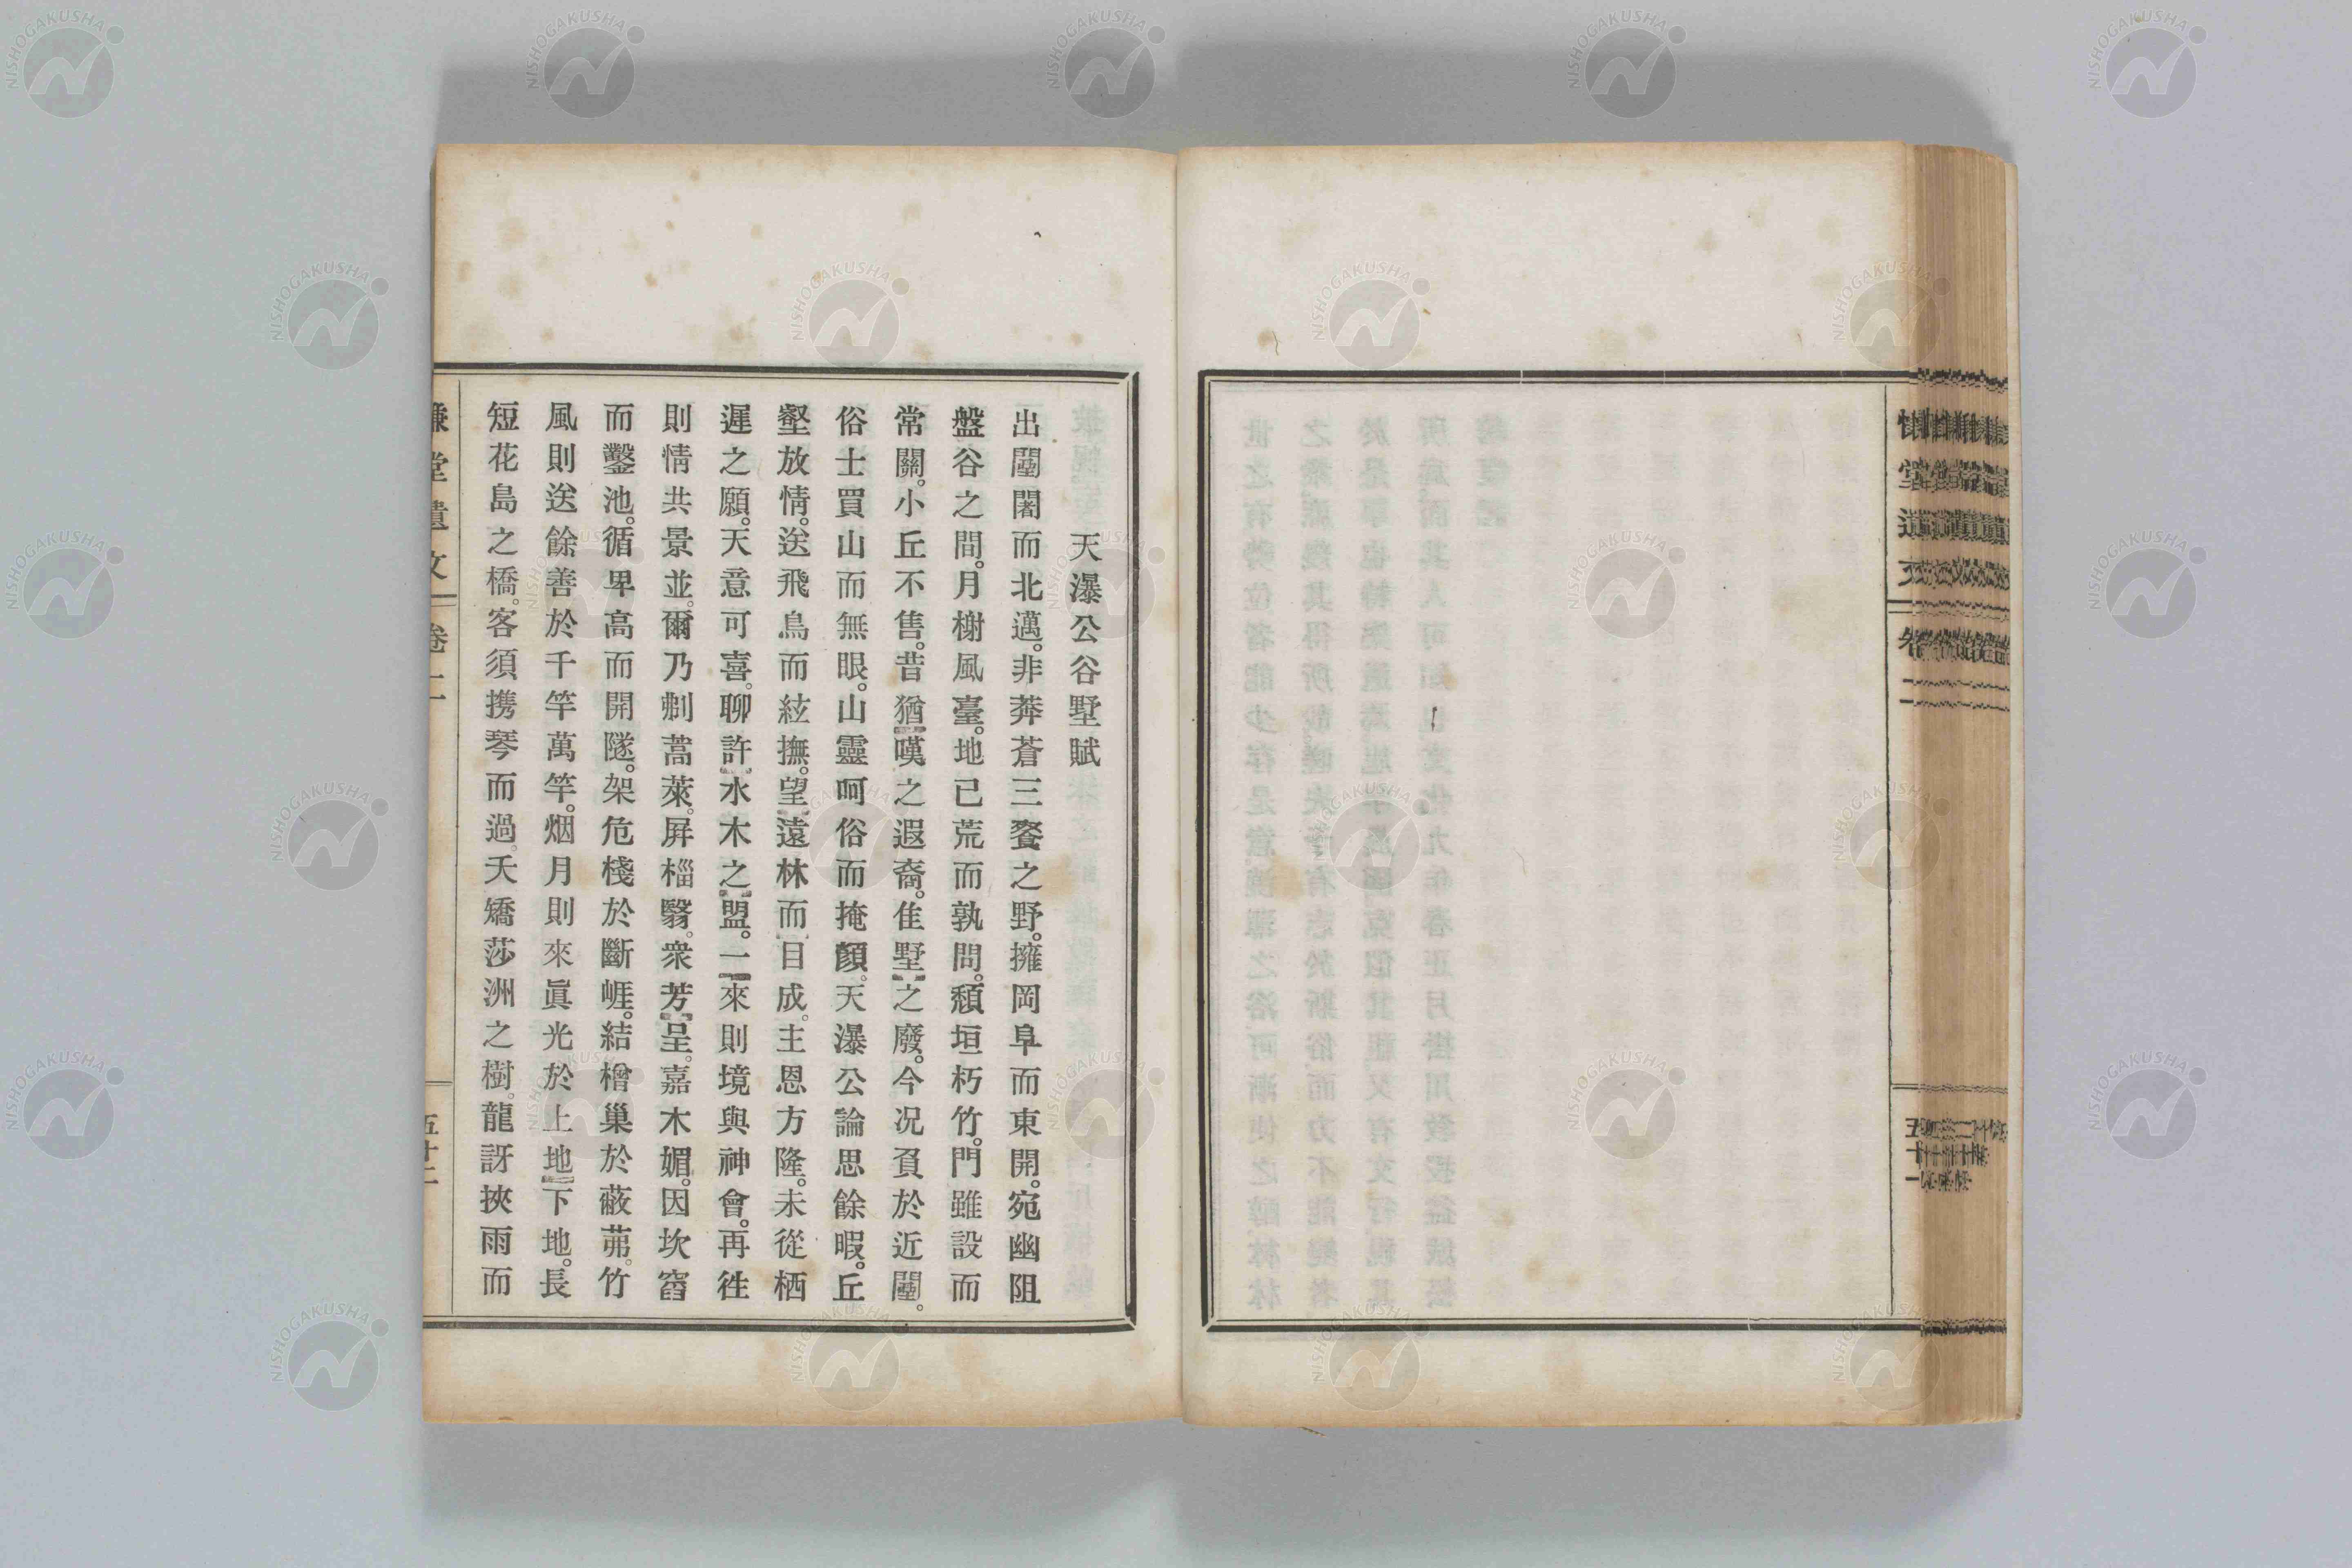 天瀑公谷墅賦
出闉闍而北邁。非莽蒼三餐之野。擁岡阜而東開。宛幽阻
盤谷之間。月榭風臺。地已荒而孰問。頹垣朽竹。門雖設而
常關。小丘不售。昔猶嘆之遐裔。佳墅之廢。今況負於近闉。
俗士買山而無眼。山靈呵俗而掩顏。天瀑公論思餘暇。丘
壑放情。送飛鳥而絃撫。望遠林而目成。主恩方隆。未從栖
遲之願。天意可喜。聊許水木之盟。一來則境與神會。再往
則情共景並。爾乃剷蒿萊。屏椔翳。衆芳呈。嘉木媚。因坎窞
而鑿池。循卑高而開隧。架危棧於斷崕。結橧巢於蔽茀。竹
風則送餘善於千竿萬竿。烟月則來眞光於上地下地。長
短花島之橋。客須携琴而過。夭矯莎洲之樹。龍訝挾雨而
慊堂遺文 卷二 五十二
堂遺文 卷二 五十一
NISHOGAKUSHA